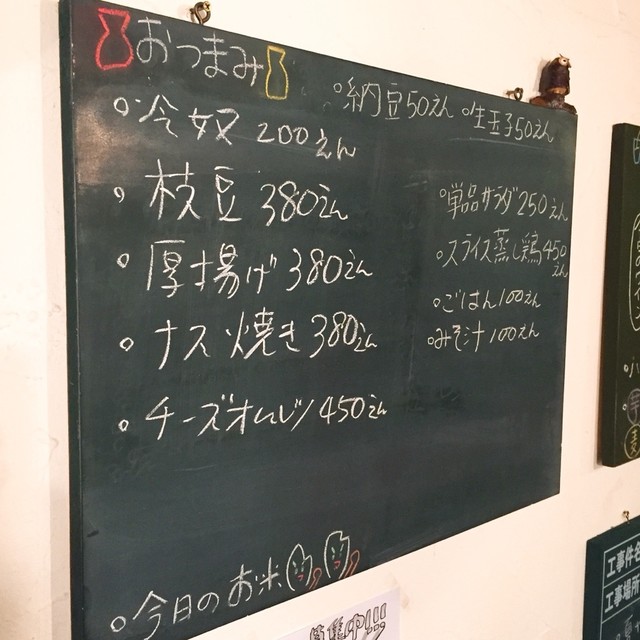 おつまみ
。冷奴 200えん
。枝豆 380えん
。厚揚げ 380えん
。ナス焼き 380えん
。チーズオムレツ 450えん
。今日のお米
。納豆50えん 。生玉子50えん
。単品サラダ 250えん
。スライス蒸し鶏 450
えん
。ごはん100えん
。みそ汁100えん
工事件名
工事場所